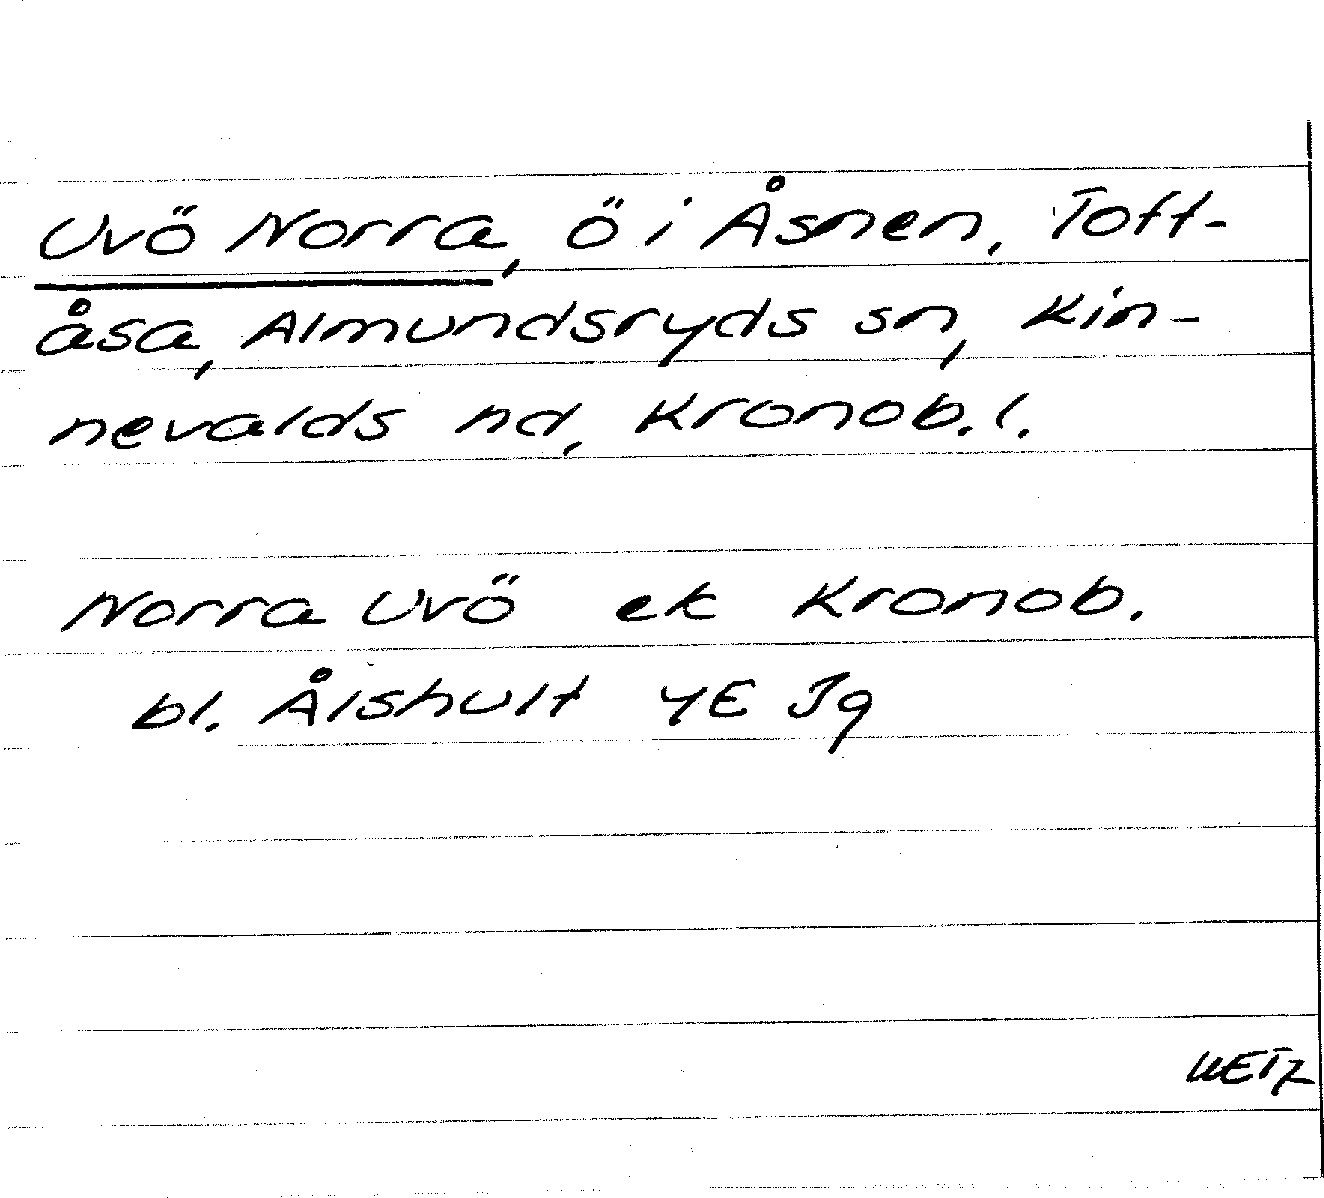 Uvö Norra, ö i Åsnen, Toft-
åsa, Almundsryds sn, Kin-
nevalds hd, Kronob. l.
Norra Uvö ek Kronob.
bl. Ålshult 4E Jg